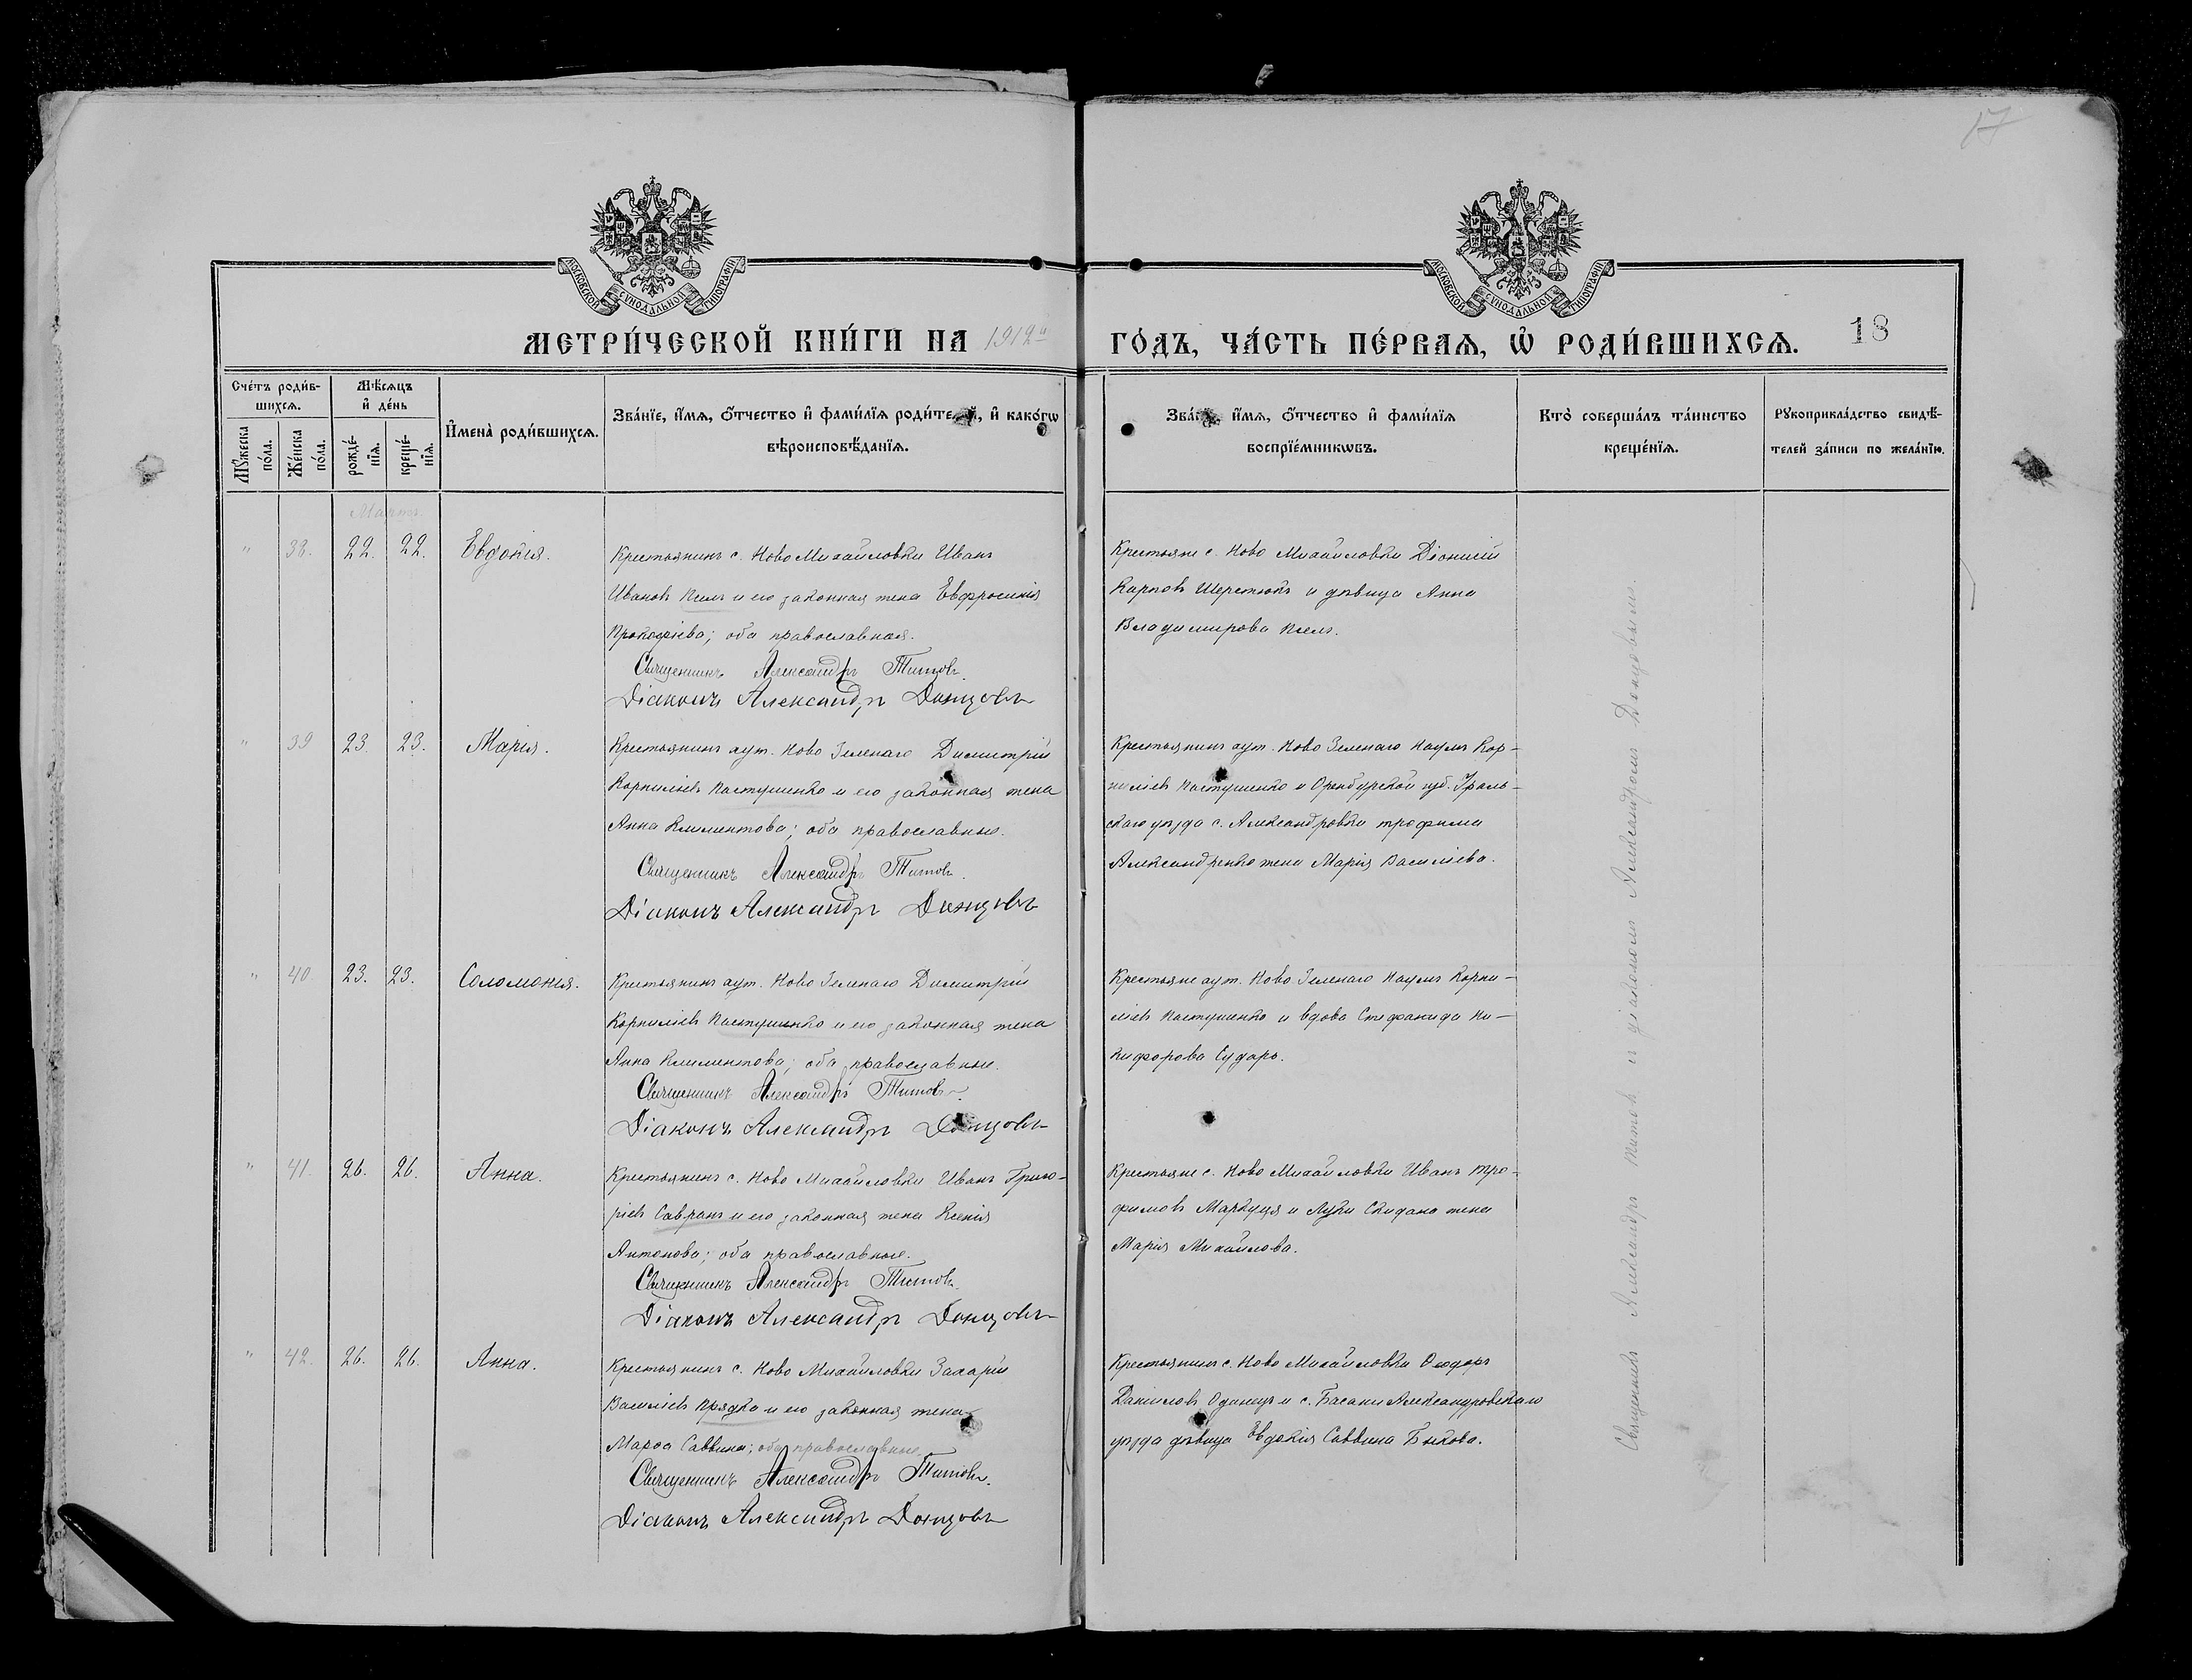 17
МОСКОВСКОЙ СѴНОДАЛЬНОЙ ТИПОГРАФІИ
МОСКОВСКОЙ СѴНОДАЛЬНОЙ ТИПОГРАФІИ
МЕТРИ́ЧЕСКОЙ КНИ́ГИ НА 1912й ГО́ДЪ, ЧА́СТЬ ПЕ́РВАѦ, Ѡ҆ РОДИ́ВШИХСѦ. 18
Сче́тъ роди́в-
шихсѧ.
Мꙋ́жеска по́ла.
Же́нска по́ла.
Мѣ́сѧцъ
и҆ де́нь
рожде́-
нїѧ.
креще́-
нїѧ.
И҆мена̀ роди́вшихсѧ.
Зва́нїе, и҆́мѧ, ѻ҆́тчество и҆ фами́лїѧ роди́телей, и҆ како́гѡ
вѣроисповѣ́данїѧ.
Зва́нїе, и҆́мѧ, ѻ҆́тчество и҆ фами́лїѧ
воспрїе́мникѡвъ.
Кто̀ соверша́лъ та́инство
креще́нїѧ.
Рꙋкоприкла́дство свидѣ́-
телей за́писи по жела́нїю.
Мартъ
" 38. 22. 22. Евдокія.
Крестьянинъ с. Ново Михайловки Иванъ
Ивановъ и его законная жена Евфросинія
Прокофіева; оба православная.
Священникъ Александръ Титовъ.
Діаконъ Александръ Донцовъ
Крестьяне с. Ново Михайловки Діонисій
Карповъ Шерстюкъ и дѣвица Анна
Владимирова
" 39 23. 23. Марія.
Крестьянинъ хут. Ново Зеленаго Димитрій
Корнилiевъ Пастушенко и его законная жена
Анна Климентова; оба православные.
Священникъ Александръ Титовъ.
Діаконъ Александръ Донцовъ
Крестьянинъ хут. Ново Зеленаго Наумъ Кор-
нилiевъ Пастушенко и Оренбурской губ. Ураль-
скаго уѣзда с. Александровки Трофима
Александренко жена Марія Василіева.
" 40 23. 23. Соломонія.
Крестьянинъ хут. Ново Зеленаго Димитрій
Корниліевъ Пастушенко и его законная жена
Анна Климентова; оба православные.
Священникъ Александръ Титовъ.
Діаконъ Александръ Донцовъ
Крестьяне хут. Ново Зеленаго Наумъ Корни-
ліевъ Пастушенко и вдова Стефанида Ни-
кифорова Сударь.
" 41. 26. 26. Анна.
Крестьянинъ с. Ново Михайловки Иванъ Григо-
ріевъ Савранъ и его законная жена Ксенія
Антонова; оба православные.
Священникъ Александръ Титовъ.
Діаконъ Александръ Донцовъ
Крестьяне с. Ново Михайловки Иванъ Тро-
фимовъ Маркуця и Луки Скидана жена
Марія Михайлова.
" 42. 26. 26. Анна.
Крестьянинъ с. Ново Михайловки Захарій
Василіевъ Прядко и его законная жена
Марѳа Саввина; оба православные.
Священникъ Александръ Титовъ.
Діаконъ Александръ Донцовъ
Крестьянинъ с. Ново Михайловки Ѳеодоръ
Даниловъ Одинецъ и с. Басани Александровскаго
уѣзда дѣвица Евдокія Саввина Быкова.
Священникъ Александръ Титовъ и діакономъ Александромъ Донцовымъ.